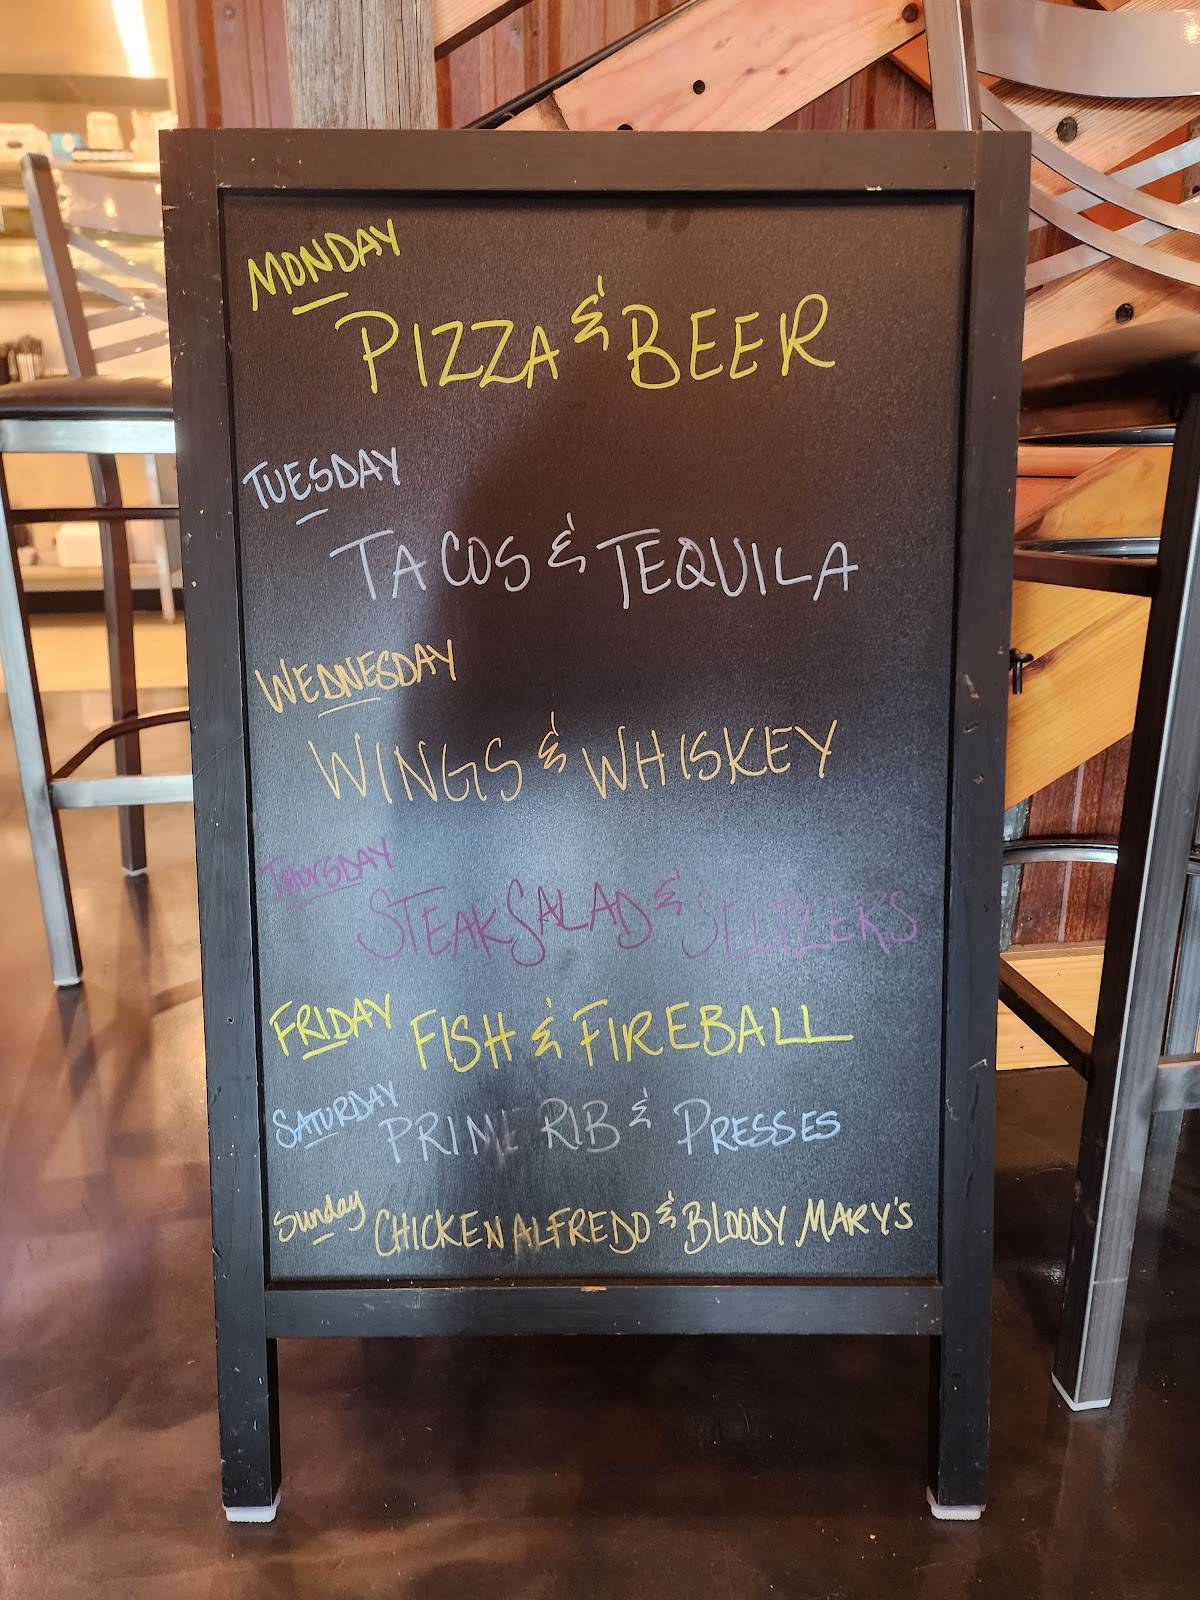 MONDAY
PIZZA & BEER
TUESDAY
TACOS & TEQUILA
WEDNESDAY
WINGS & WHISKEY
THURSDAY
STEAK SALAD & SELTZERS
FRIDAY FISH & FIREBALL
SATURDAY PRIME RIB & PRESSES
Sunday CHICKEN ALFREDO & BLOODY MARY'S